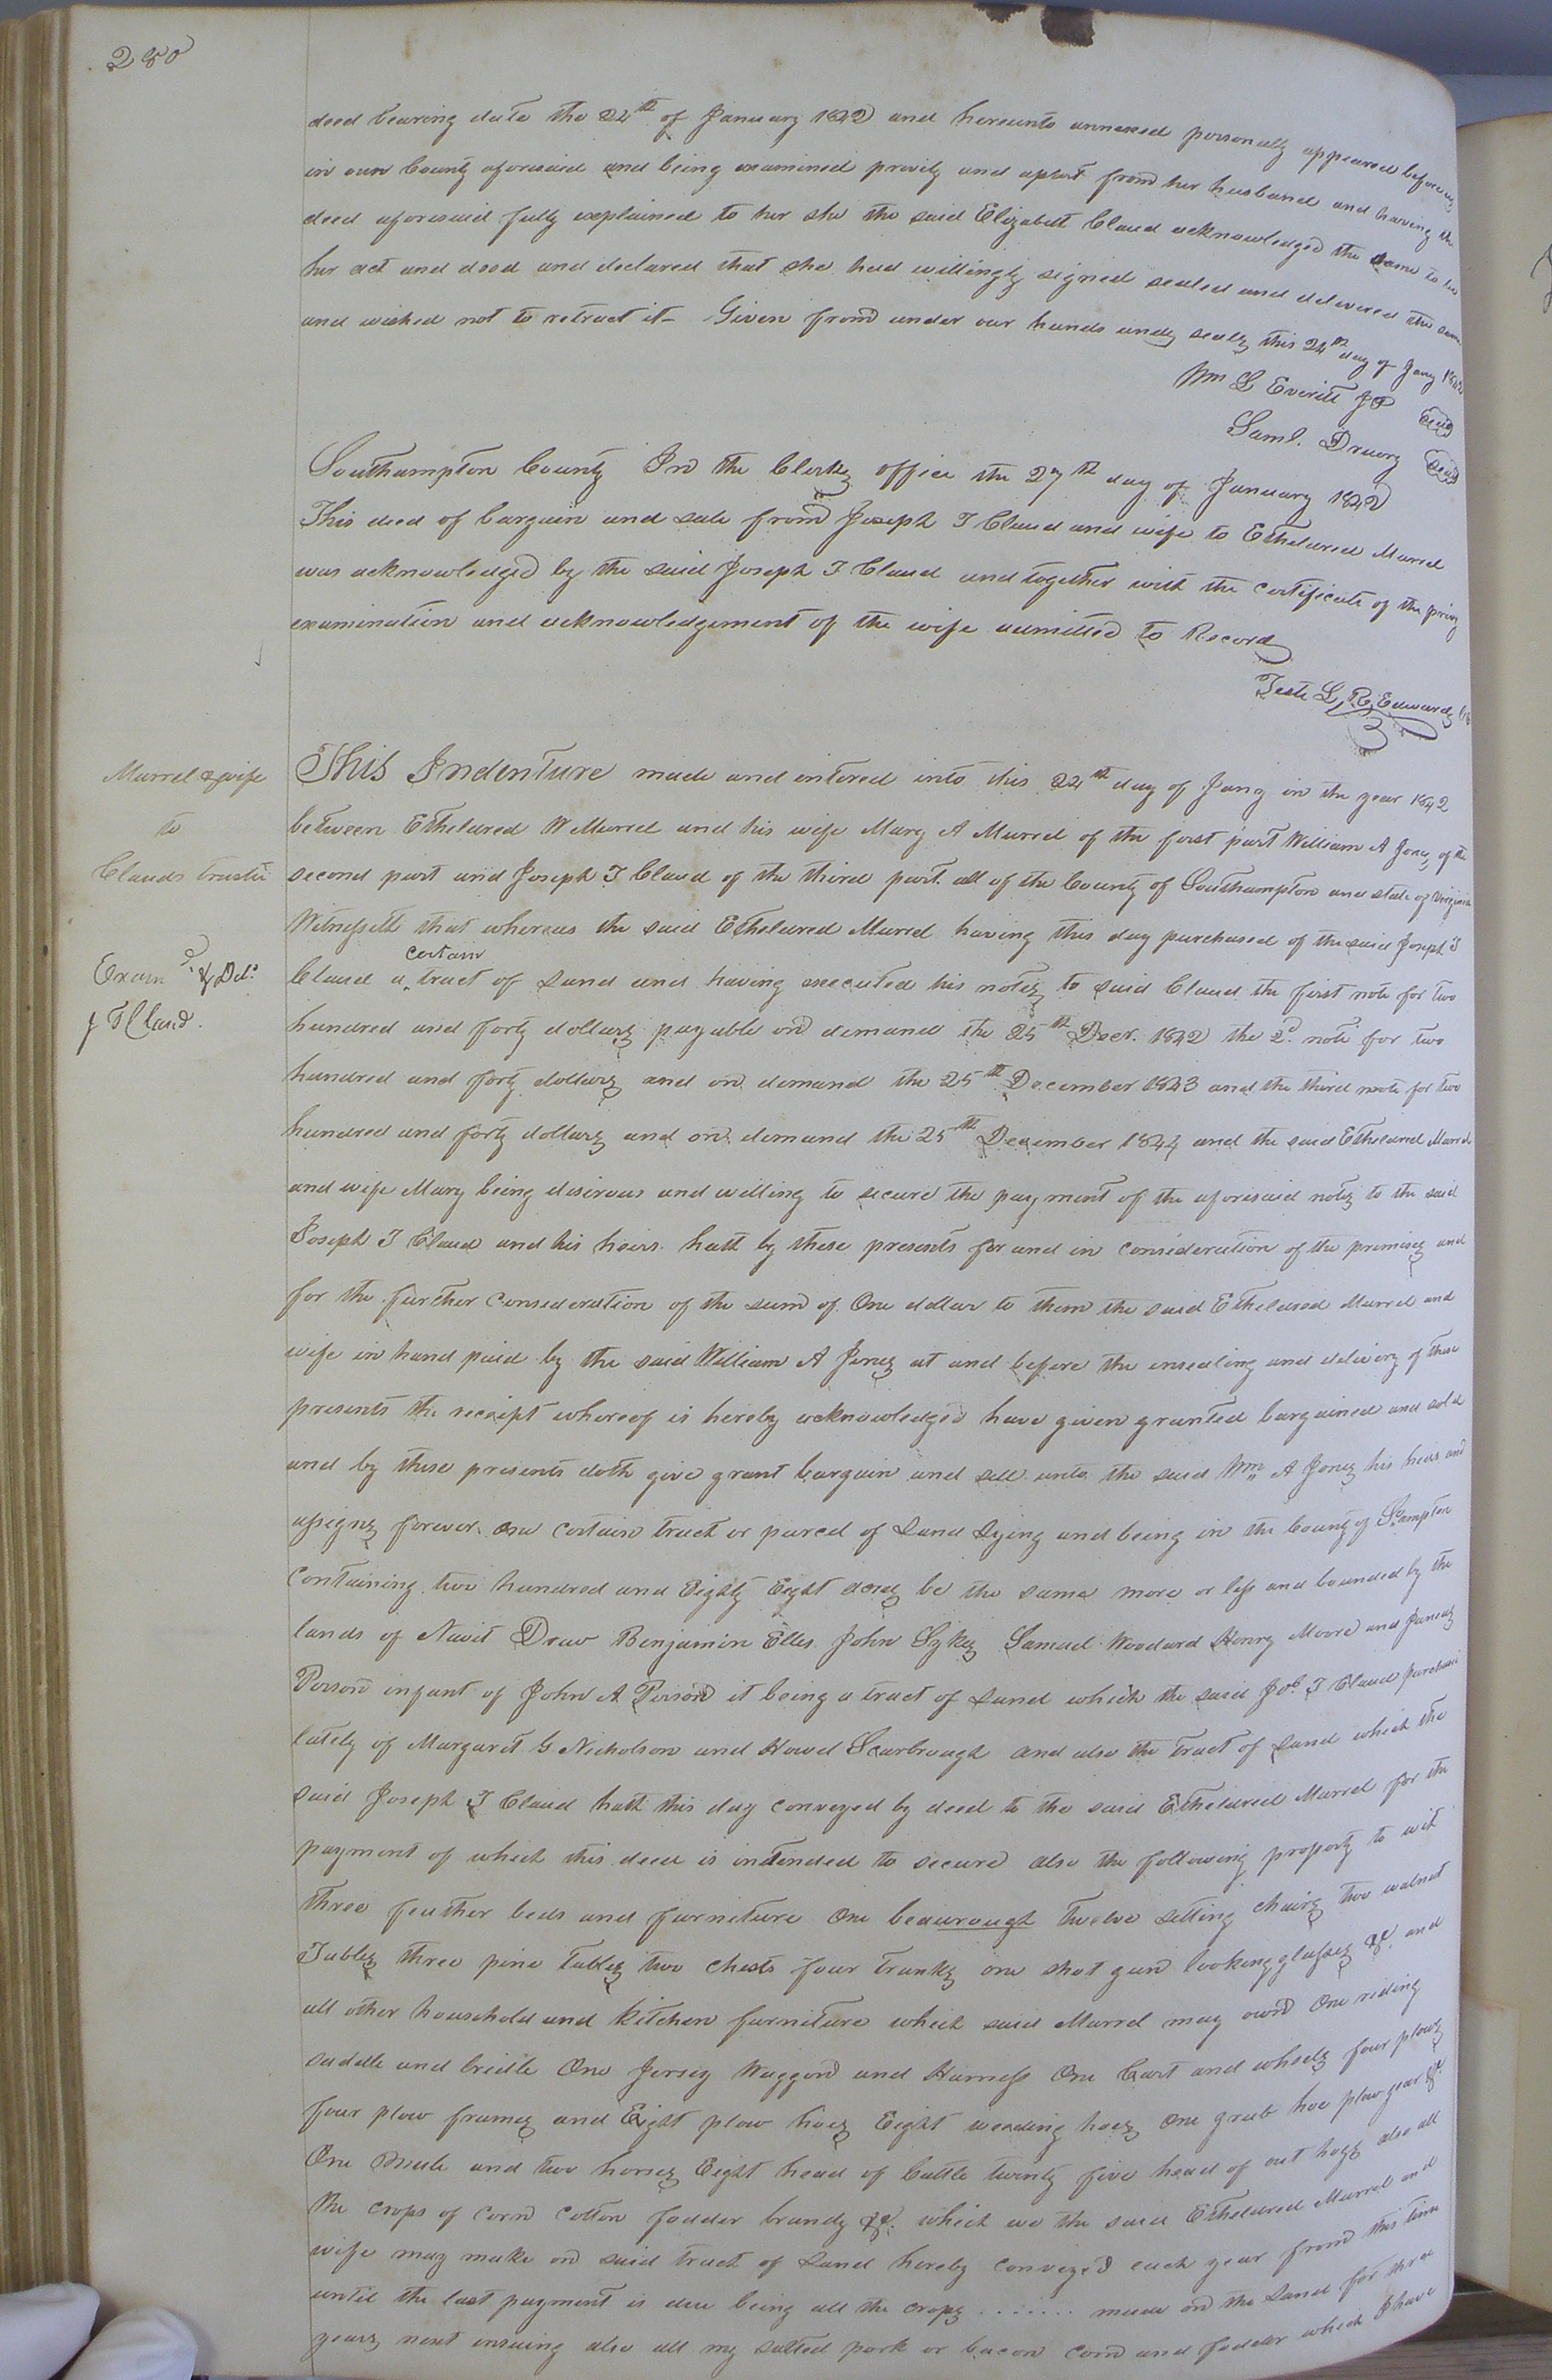 280
deed bearing date the 24th of January 1842 and hereunto annexed personally appeared before us
in our County aforesaid and being examined privily and apart from her husband and having the
deed aforesaid fully explained to her she the said Elizabeth Claud acknowledged the same to be
her act and deed and declared that she had willingly signed sealed and delivered the same
and wished not to retract it – Given from under our hands and seals this 24th day of Jany 1842
Wm L Everitt JP Seal
Saml. Drewry Seal
Southampton County In the Clerks office the 27th day of January 1842
This deed of bargain and sale from Joseph T Claud and wife to Ethelured Murrel
was acknowledged by the said Joseph T Claud and together with the certificate of the privy
examination and acknowledgement of the wife admitted to Record
Teste L, R, Edwards Clk
Murrel & wife
to
Clauds trustee
Examd. & Deld.
J T Claud.
This Indenture made and entered into this 24th day of Jany in the year 1842
between Ethelured W Murrel and his wife Mary A Murrel of the first part William A Jones of the
second part and Joseph T Claud of the third part all of the County of Southampton and state of Virginia
Witnesseth that whereas the said Ethelured Murrel having this day purchased of the said Joseph T
Claud a certain tract of Land and having executed his notes to said Claud the first note for two
hundred and forty dollars payable on demand the 25th Decr. 1842 the 2d. note for two
hundred and forty dollars and on demand the 25th December 1843 and the third note for two
hundred and forty dollars and on demand the 25th December 1844 and the said Ethelured Murrel
and wife Mary being desirous and willing to secure the payment of the aforesaid notes to the said
Joseph T Claud and his heirs hath by these presents for and in consideration of the premises and
for the further consideration of the sum of One dollar to them the said Ethelured Murrel and
wife in hand paid by the said William A Jones at and before the ensealing and delivery of these
presents the receipt whereof is hereby acknowledged have given granted bargained and sold
and by these presents doth give grant bargain and sell unto the said Wm A Jones his heirs and
assigns forever one certain tract or parcel of Land Lying and being in the County of S.ampton
containing two hundred and Eighty Eight acres be the same more or less and bounded by the
lands of Newit Drew Benjamin Elles John Sykes Samuel Woodard Henry Moore and
Person infant of John A Person it being a tract of Land which the said Jos. T Claud purchased
lately of Margaret G Nicholson and Howel Scarbrough and also the tract of Land which the
said Joseph T Claud hath this day conveyed by deed to the said Ethelured Murrel for the
payment of which this deed is intended to secure also the following property to wit
three feather beds and furniture One beaurough twelve setting chairs two walnut
Tables three pine tables two chests four trunks one shot gun looking glasses &c. and
all other household and kitchen furniture which said Murrel may own One riding
saddle and bridle One Jersey Waggon and Harness One Cart and wheels four plows
four plow frames and Eight plow hoes Eight weeding hoes One grub hoe plow gear &c
One Mule and two horses Eight head of Cattle twenty five head of out hogs also all
the crops of corn cotton fodder brandy &c. which we the said Ethelured Murrel and
wife may make on said tract of Land hereby conveyed each year from this time
until the last payment is due being all the crops ....... made on the Land for three
years next ensuing also all my salted pork or bacon corn and fodder which I have